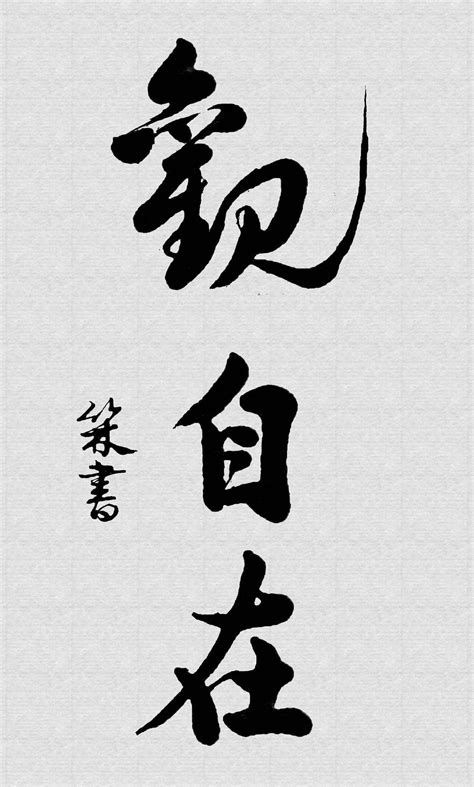 觀自在
策書